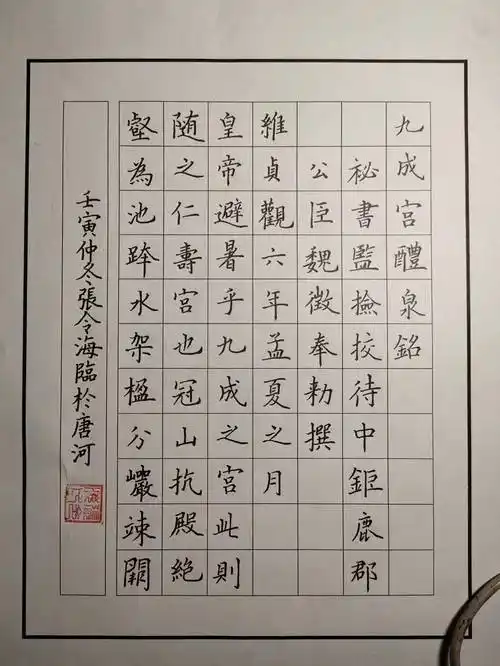 九成宫醴泉銘
祕書監撿挍待中鉅鹿郡
公臣魏徵奉勑撰
維貞觀六年孟夏之月
皇帝避暑乎九成之宫此則
随之仁壽宫也冠山抗殿絶
壑為池跨水架楹分巖竦闕
壬寅仲冬張令海臨於唐河